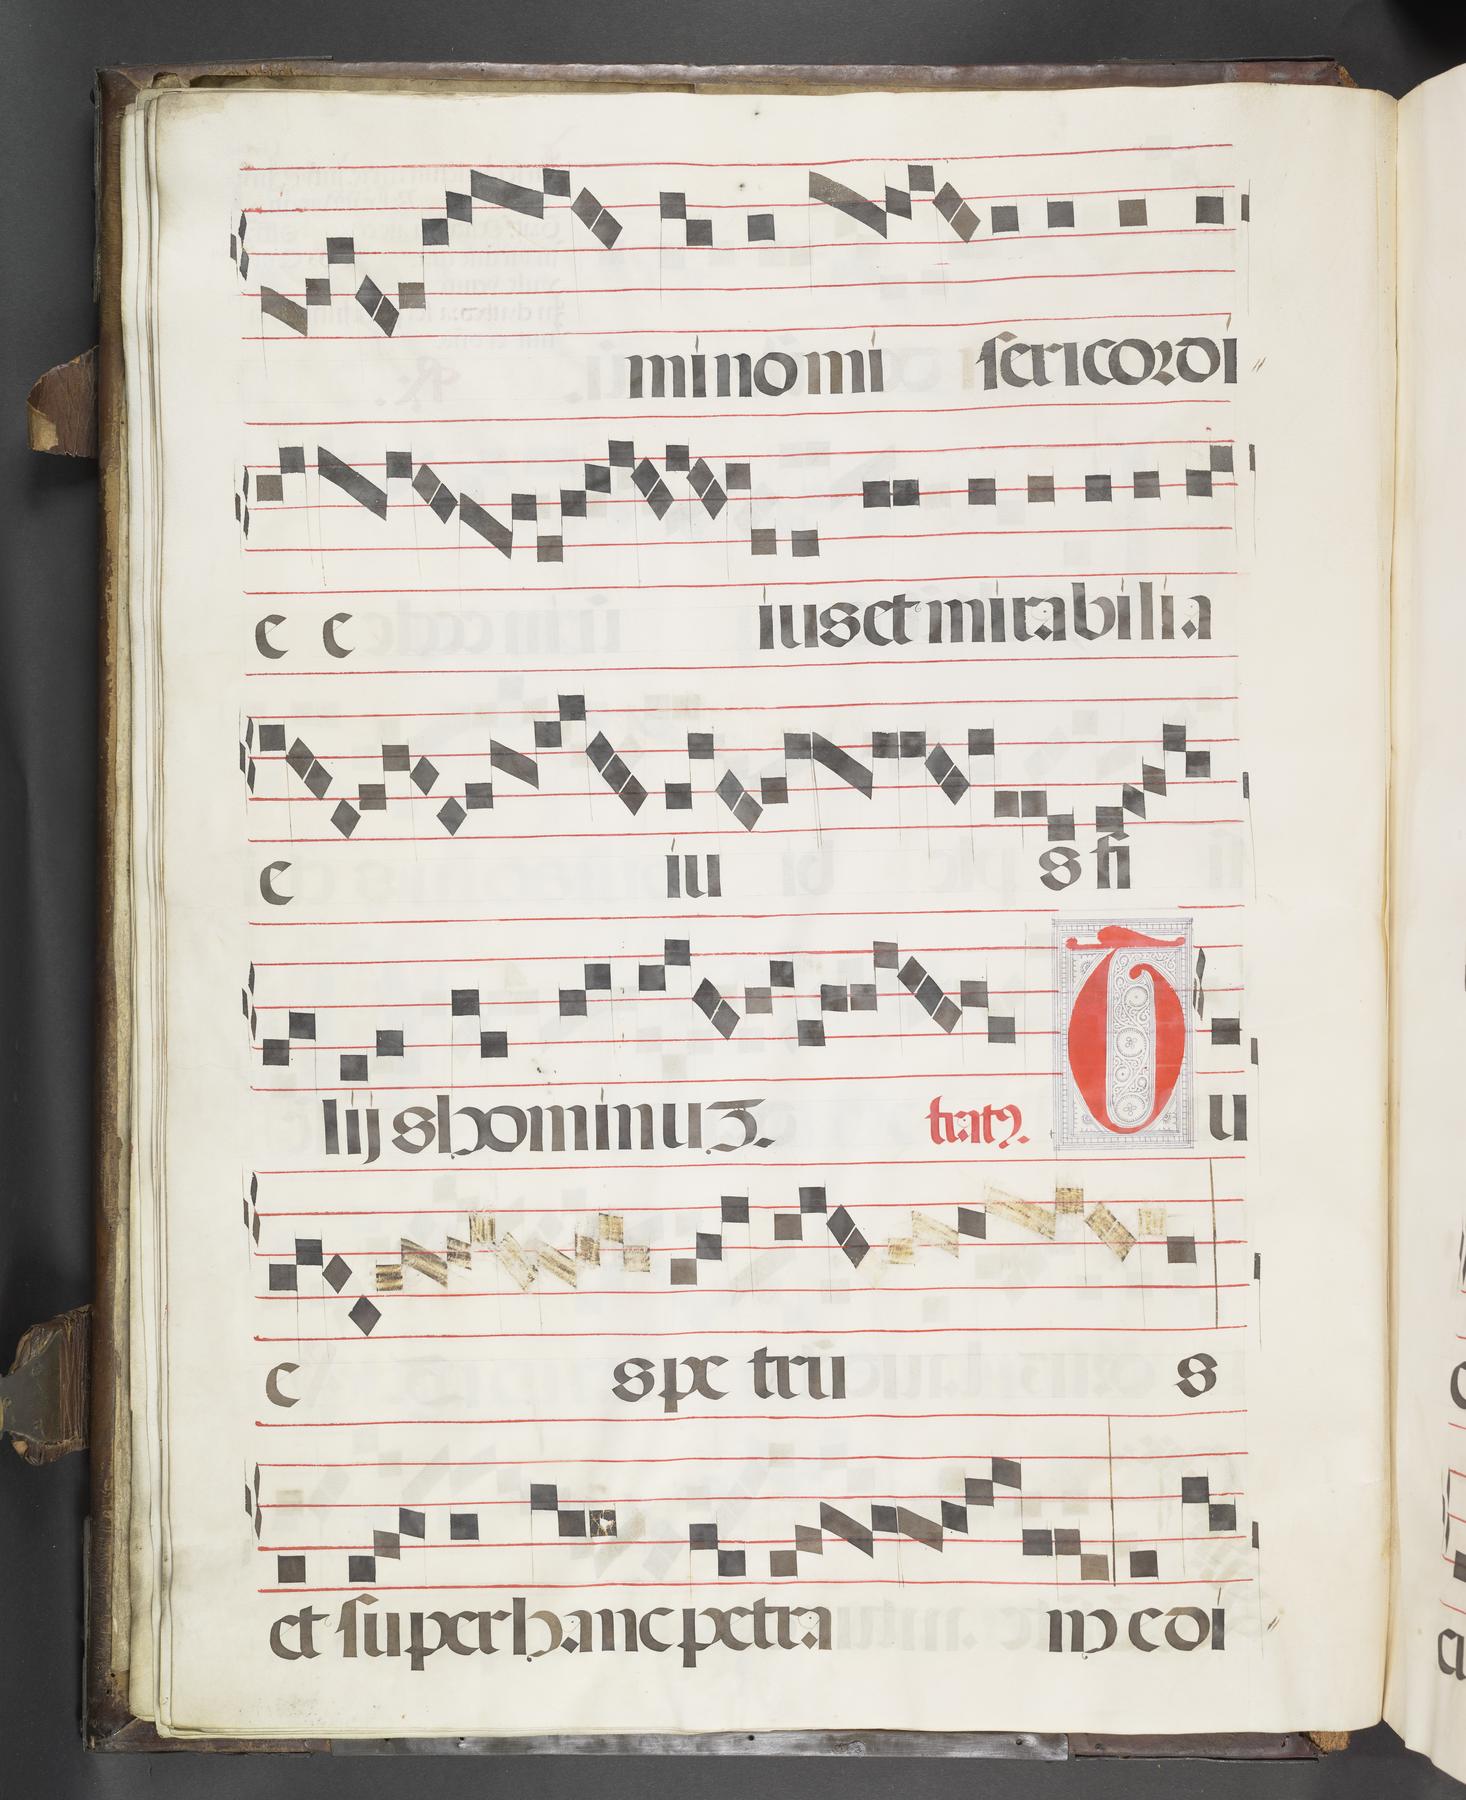 mino mi sericordi
e e ius et mirabilia
e iu s fi
lijs hominuȝ. tratꝯ. T u
e s pe tru s
et super hanc petra m edi